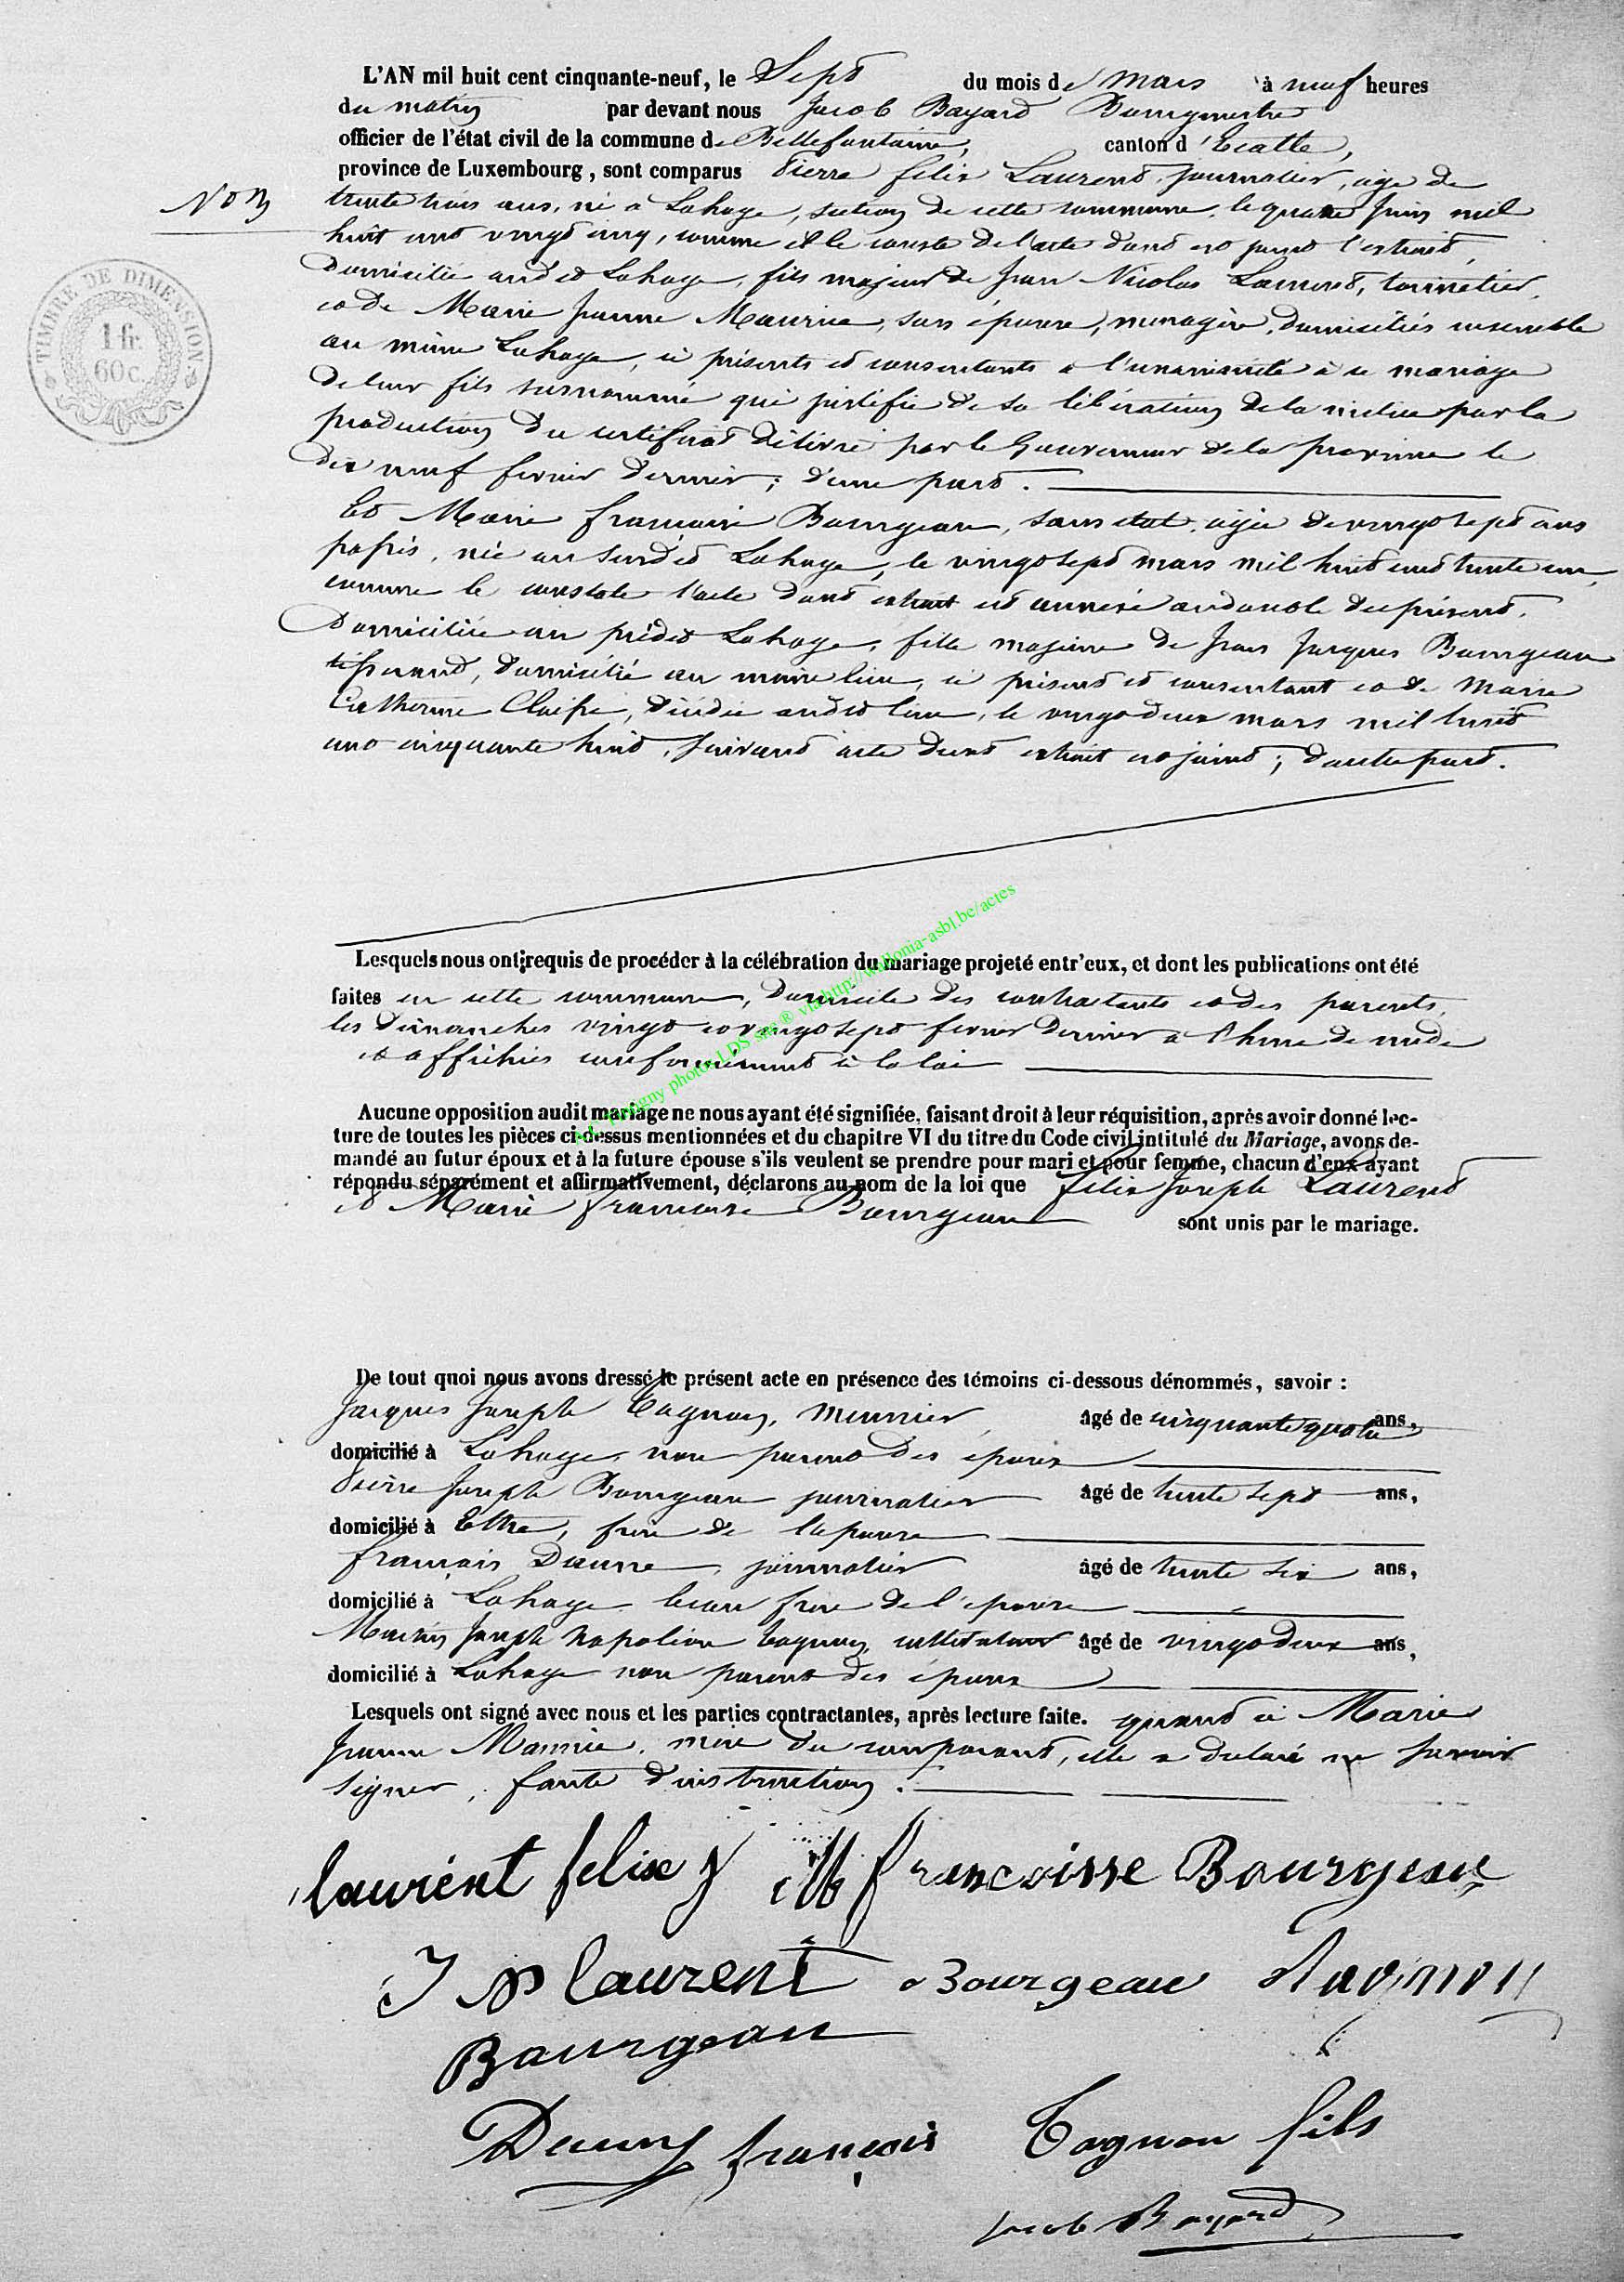 L'AN mil huit cent cinquante-neuf, le Sept du mois de mars à neuf heures
du matin par devant nous Jacob Bayard Bourgmestre
officier de l'état civil de la commune de Bellefontaine, canton d'Etalle,
province de Luxembourg, sont comparus Pierre felix Laurent, journalier, age de
N° 3
trente trois ans, né a Lahage, section de cette commune, le quatre Juin mil
huit cent vingt cinq, comme il le conste de l'acte dont est joint l'extrait,
Domicilié audit Lahage, fils majeur de Jean Nicolas Laurent,
TIMBRE DE DIMENSION
1 fr.
60 c.
et de Marie Jeanne Maurice, son épouse, menagère, domiciliés ensemble
au même Lahage, ici présents et consentants a l'unanimité à ce mariage
de leur fils surnommé qui justifie de sa libération de la milice par la
production du certificat délivré par le Gouverneur de la province le
dix neuf fevrier dernier; d'une part.
Et Marie francoise Bourgeau, sans etat, agée de vingt sept ans
passés, née au susdit Lahage, le vingt sept mars mil huit cent trente un,
comme le constate l'acte dont extrait est annexé au double du présent,
Domiciliée au prédit Lahage, fille majeure de Jean Jacques Bourgeau
tisserand, domicilié au même lieu, ici présent et consentant et de Marie
Catherine Claisse, décédée audit lieu, le vingt deux mars mil huit
cent cinquante huit, suivant acte dont extrait est joint; d'autre part.
Lesquels nous ont requis de procéder à la célébration du mariage projeté entr'eux, et dont les publications ont été
faites en cette commune, domicile des contractants et des parents,
les dimanches vingt et vingt sept fevrier dernier a l'heure de midi
et affichées conformément à la loi
Aucune opposition audit mariage ne nous ayant été signifiée, faisant droit à leur réquisition, après avoir donné lec-
ture de toutes les pièces ci-dessus mentionnées et du chapitre VI du titre du Code civil intitulé du Mariage, avons de-
mandé au futur époux et à la future épouse s'ils veulent se prendre pour mari et pour femme, chacun d'eux ayant
répondu séparément et affirmativement, déclarons au nom de la loi que felix Joseph Laurent
et Marie francoise Bourgeau sont unis par le mariage.
A.C. Tintigny photos LDS sits ® via http://wallonia-asbl.be/actes
De tout quoi nous avons dressé le présent acte en présence des témoins ci-dessous dénommés, savoir :
Jacques Joseph Tagnon, meunier, âgé de cinquante quatre ans,
domicilié à Lahage, non parent des époux
Pierre Joseph Bourgeau journalier âgé de trente sept ans,
domicilié à Ethe, frère de l'épouse
francois Daune, journalier âgé de trente six ans,
domicilié à Lahage beau frère de l'épouse
Martin Joseph Napoléon Tagnon, cultivateur âgé de vingt deux ans,
domicilié à Lahage non parent des époux
Lesquels ont signé avec nous et les parties contractantes, après lecture faite. quant à Marie
Jeanne Maurice, mère du comparant, elle a declaré ne savoir
signer, faute d'instruction.
laurént felix J M francoisse Bourgeau
J N laurent Bourgeau Tagnon
Bourgeau
Daune françois Tagnon fils
Jacob Bayard